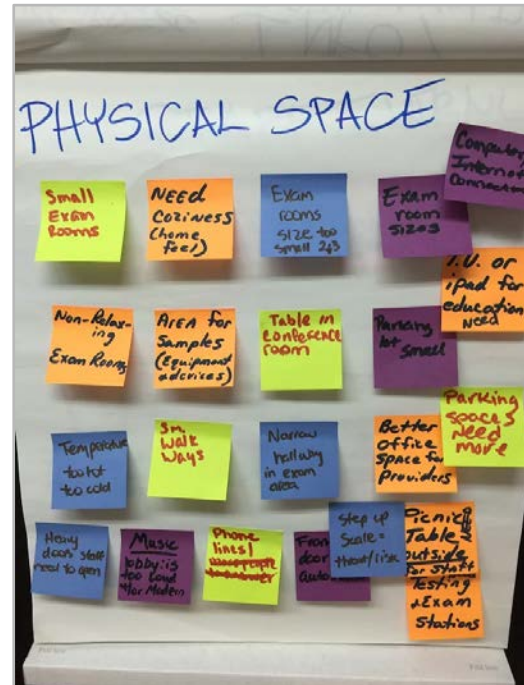 PHYSICAL SPACE
Small
Exam
Rooms
NEED
COZINESS
(home
feel)
Exam
rooms
size too
small 2&3
Exam
room
sizes
Computer
Internet
Non-Relax-
ing
Exam Rooms
AREA for
Samples
(Equipment
& devices)
Table in
conference
room
Parking
lot
small
T.V. or
ipad for
education
Need
Temperature
too hot
too cold
Sm.
Walk
Ways
Narrow
hallway
in exam
area
Better
Office
Space for
Providers
Parking
spaces
Need
more
Heavy
doors staff
need to open
Music
lobby: is
too loud
Modern
Phone
lines/
Front
door
auto
step up
Scale =
Picnic
Table
outside
for staff
Testing
& Exam
Stations